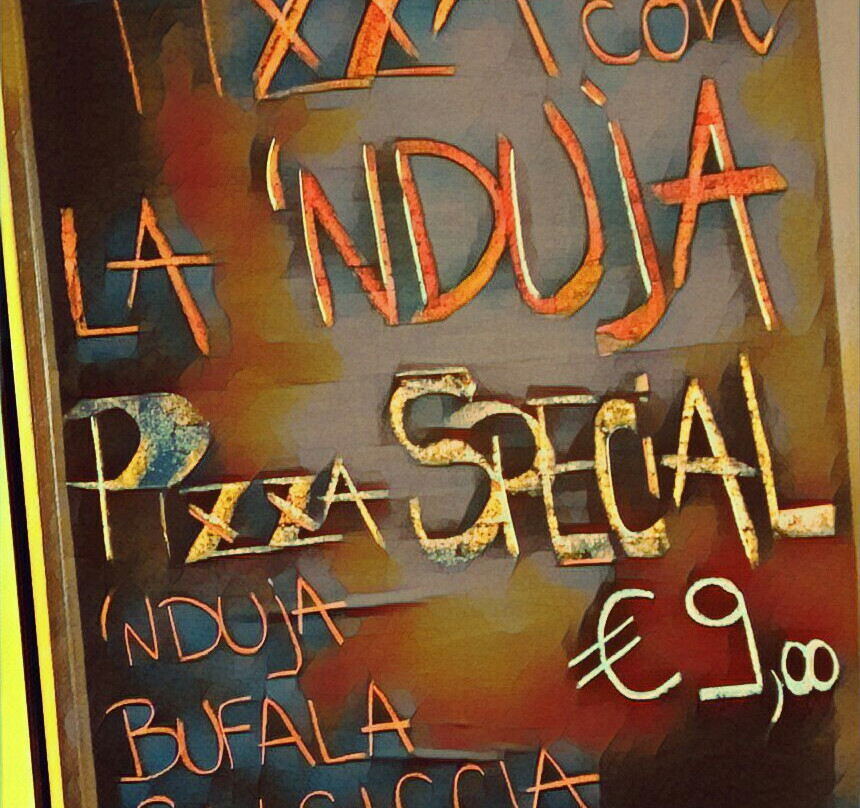 PIZZA con
LA 'NDUJA
PIZZA SPECIAL
'NDUJA €9,00
BUFALA
SALSICCIA